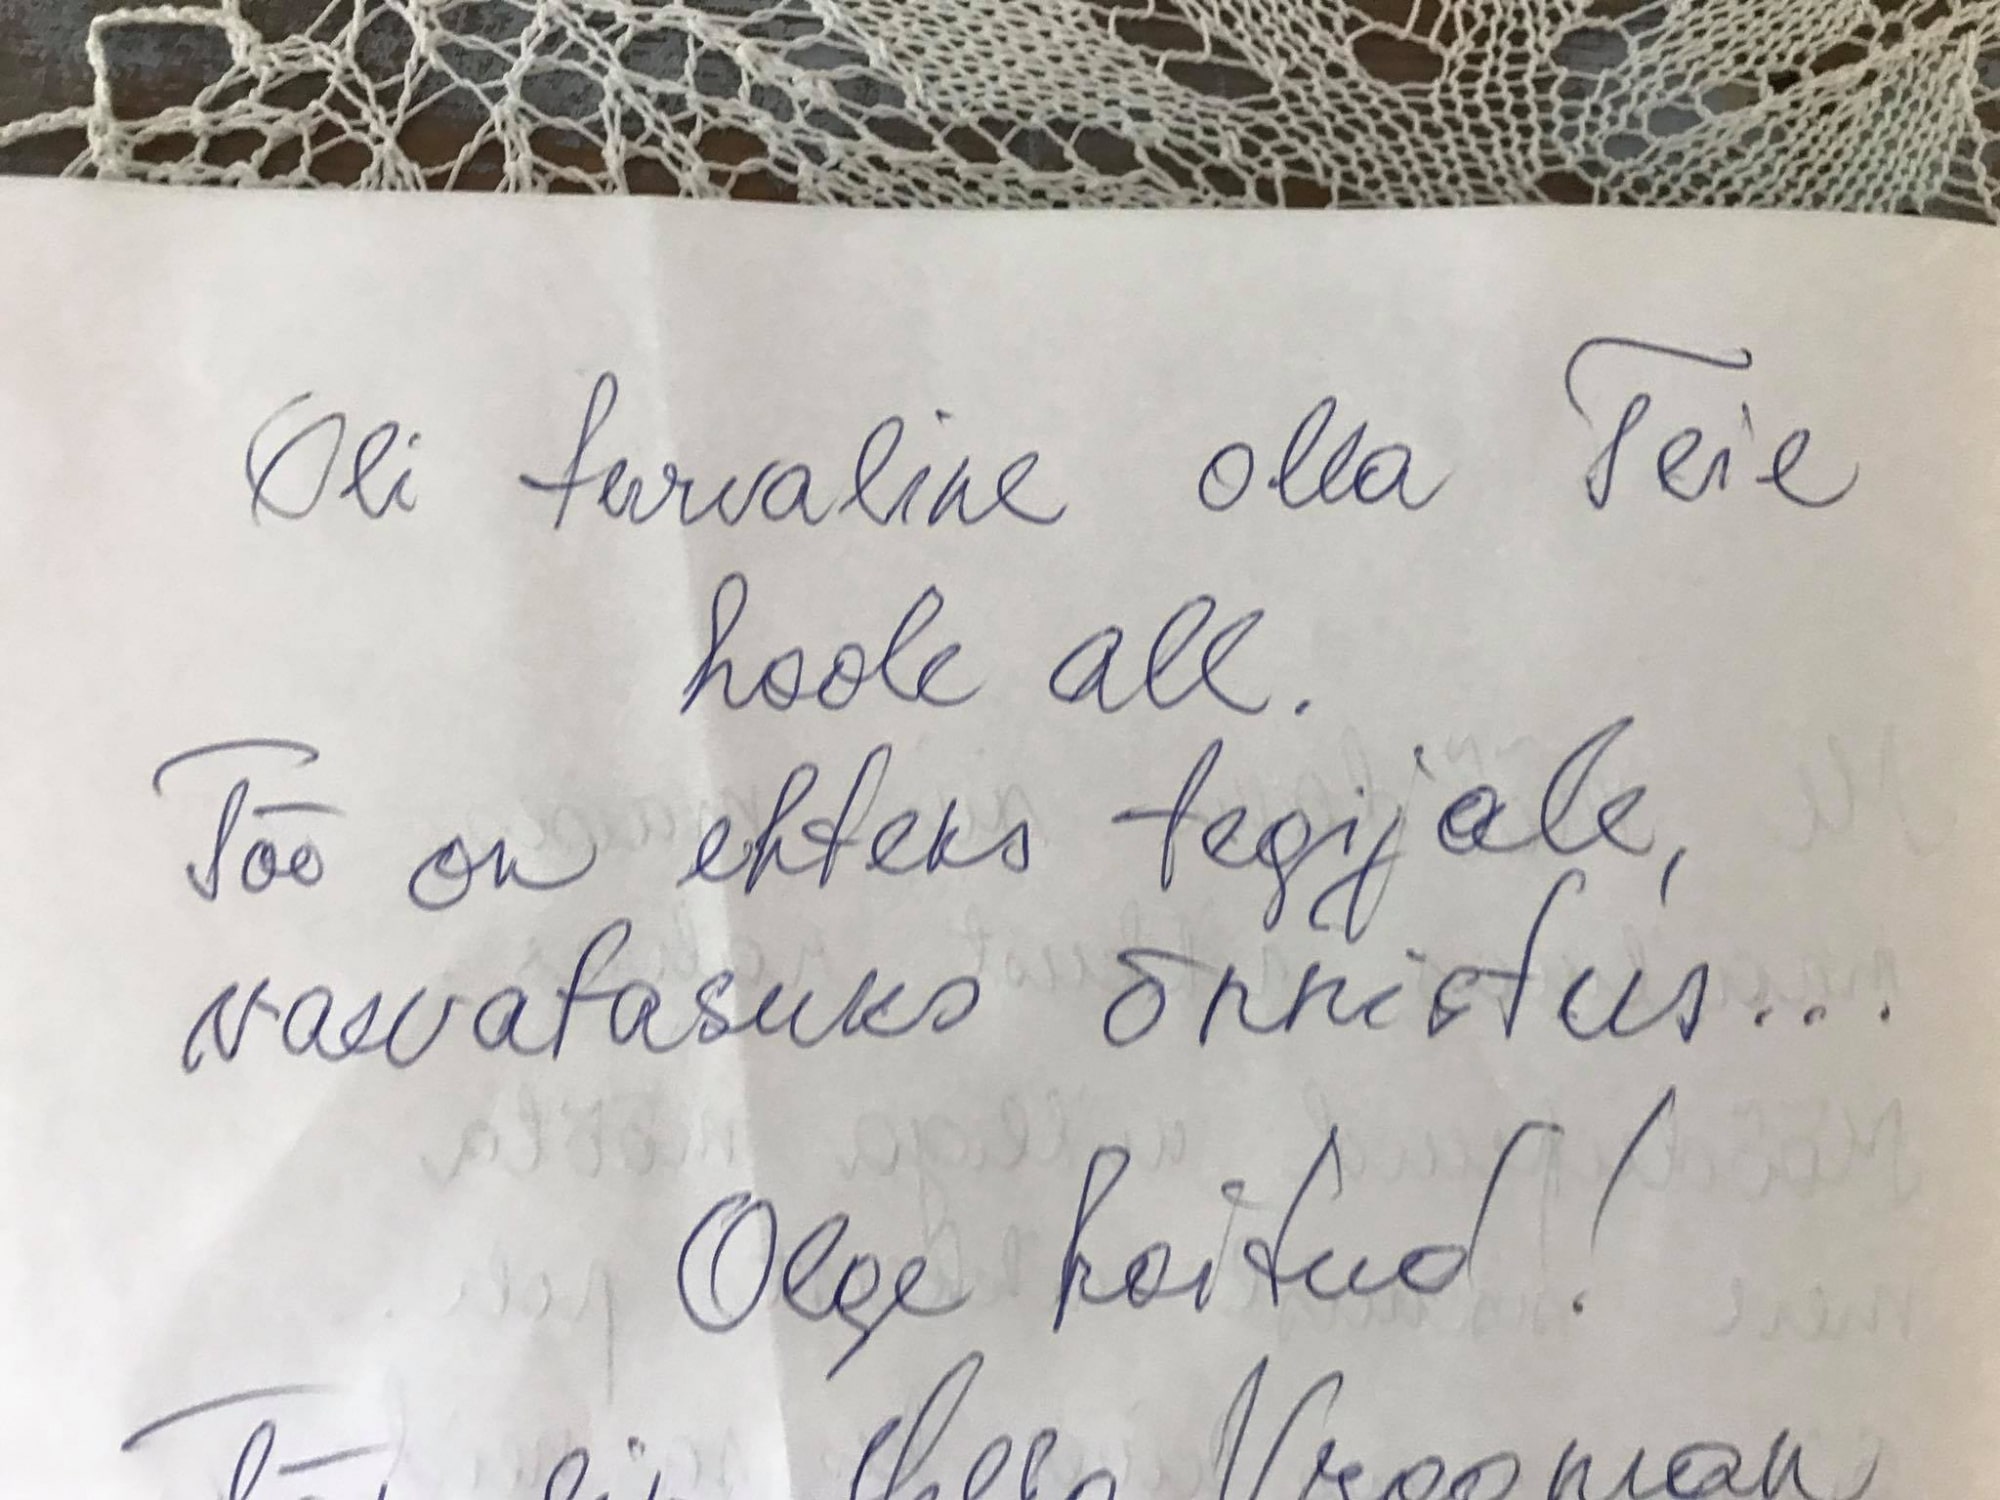 Oli turvaline olla Teie
hoole all.
Töö on ehteks tegijale,
vaevatasuks õnnistus...
Olge hoitud!